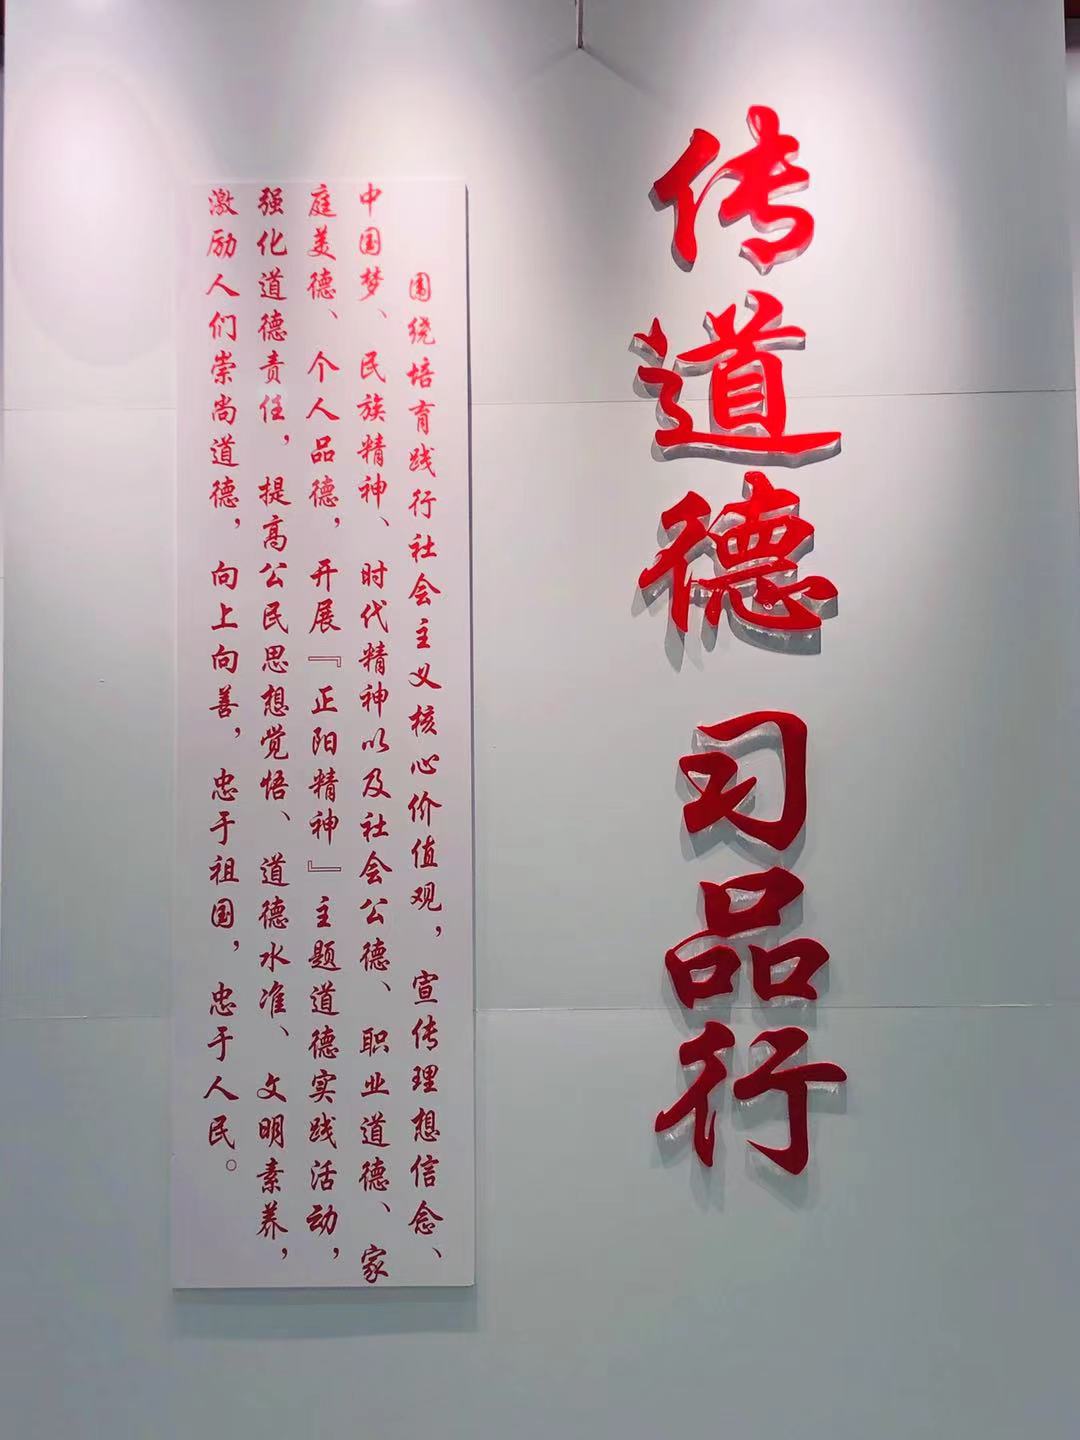 传道德 习品行
围绕培育践行社会主义核心价值观，宣传理想信念、
中国梦、民族精神、时代精神以及社会公德、职业道德、家
庭美德、个人品德，开展『正阳精神』主题道德实践活动，
强化道德责任，提高公民思想觉悟、道德水准、文明素养，
激励人们崇尚道德，向上向善，忠于祖国，忠于人民。